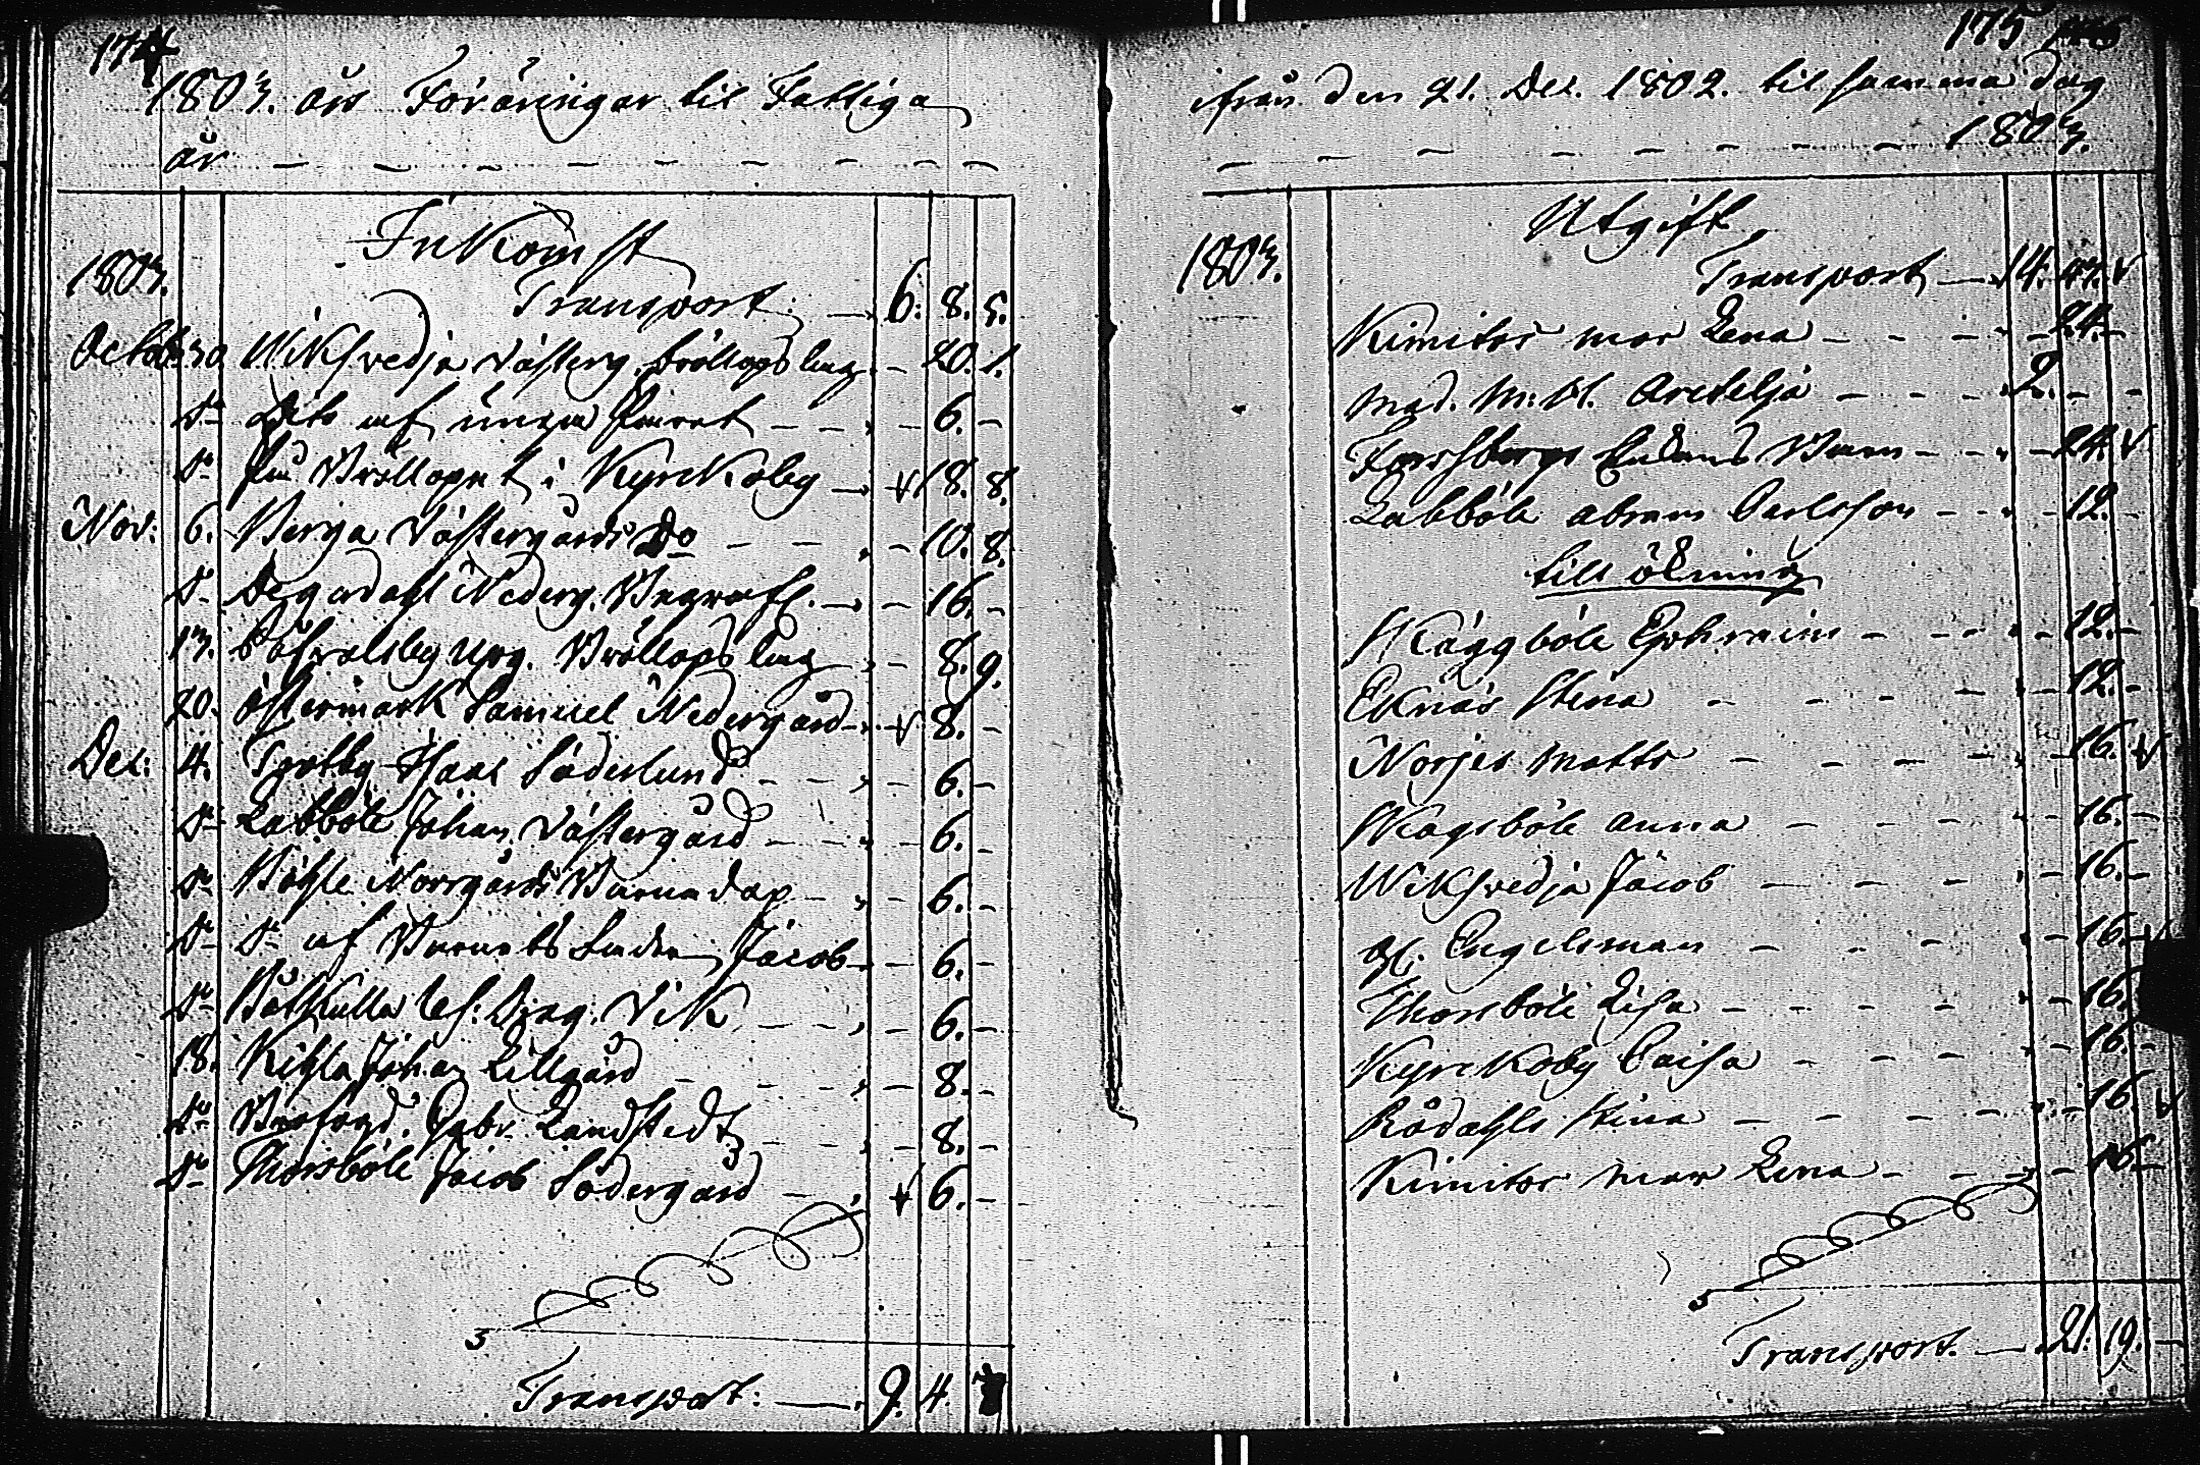 174
1803. års Föräringar til Fattiga
år — — — — — — — — —
Inkomst
1803.
Transport: — 6: 8. 5.
Octob: 30 Wiksvedja Västerg. Bröllops lag. - 20. 1.
Do Dito af unga Paret - - - 6. -
Do På Bröllopet i Kyrckoby - 18. 8.
Nov: 6. Berga Västergårds Do - - - 10. 8.
Do Degerdahl Nederg. - 16. -
13. uppg. Bröllops lag - - 8. 9.
20. Östermark Samuel Nedergård - 8. -
Dec: 4. Tjotby Söderlund - - - 6. -
Do Labböle Johan Västergård - - - 6. -
Do Böhle Norrgårds Barnadop - - - 6. -
Do Do af Barnets Fader Jacob - - 6. -
Do Vik - - - 6. -
18. Kihla Johan Lillgård - - - 8. -
Do Gabr. Landstedt - - - 8. -
Do Thorsböle Jacob Södergård - - 6. -
Transport: — 9. 4.
175
ifrån den 21. Dec. 1802. til samma dag
— — — — — — — — 1803.
Utgift
1803.
Transport — 14. 47.
Kimitos mor Lena - - - - 24. -
Mad. M: Arctelja - - - 2. - -
Forssbergs Enkans Barn - - - 24.
Labböle Abram Carlsson - - - 12. -
till ökning
Skäggböle Ephraim - - - - 12. -
Eknäs Stina - - - - 12. -
Norjes Matts - - - - 16.
Skogsböle Anna - - - - 16. -
Wiksvedja Jacob - - - - 16. -
Engelsman - - - - 16. -
Thorsböle Lisa - - - - 16.
Kyrckoby Caisa - - - - 16. -
Rådahls Stina - - - - 16
Kimitos mor Lena - - - - 16. -
Transport. — 21. 19. -